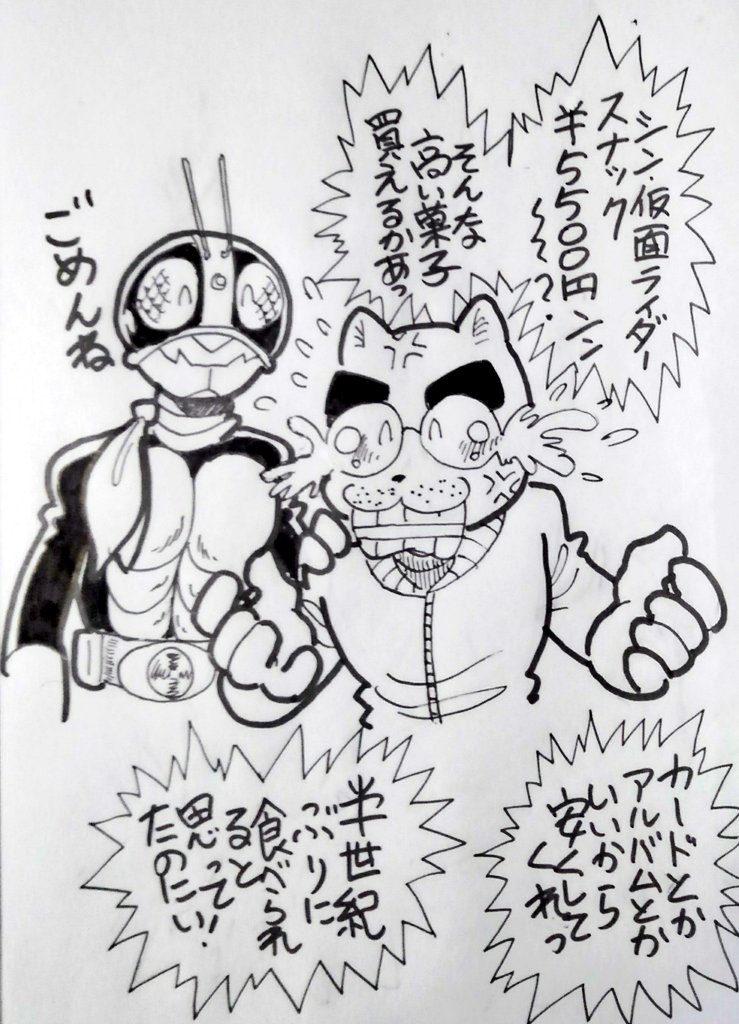 シン・仮面ライダー
スナック
¥5500円ンン
〜〜?.
そんな
高い菓子
買えるかあっ
ごめんね
カードとか
アルバムとか
いいから
安くしって
くれっ
半世紀
ぶりに
食べられ
ると
思って!
たのにい